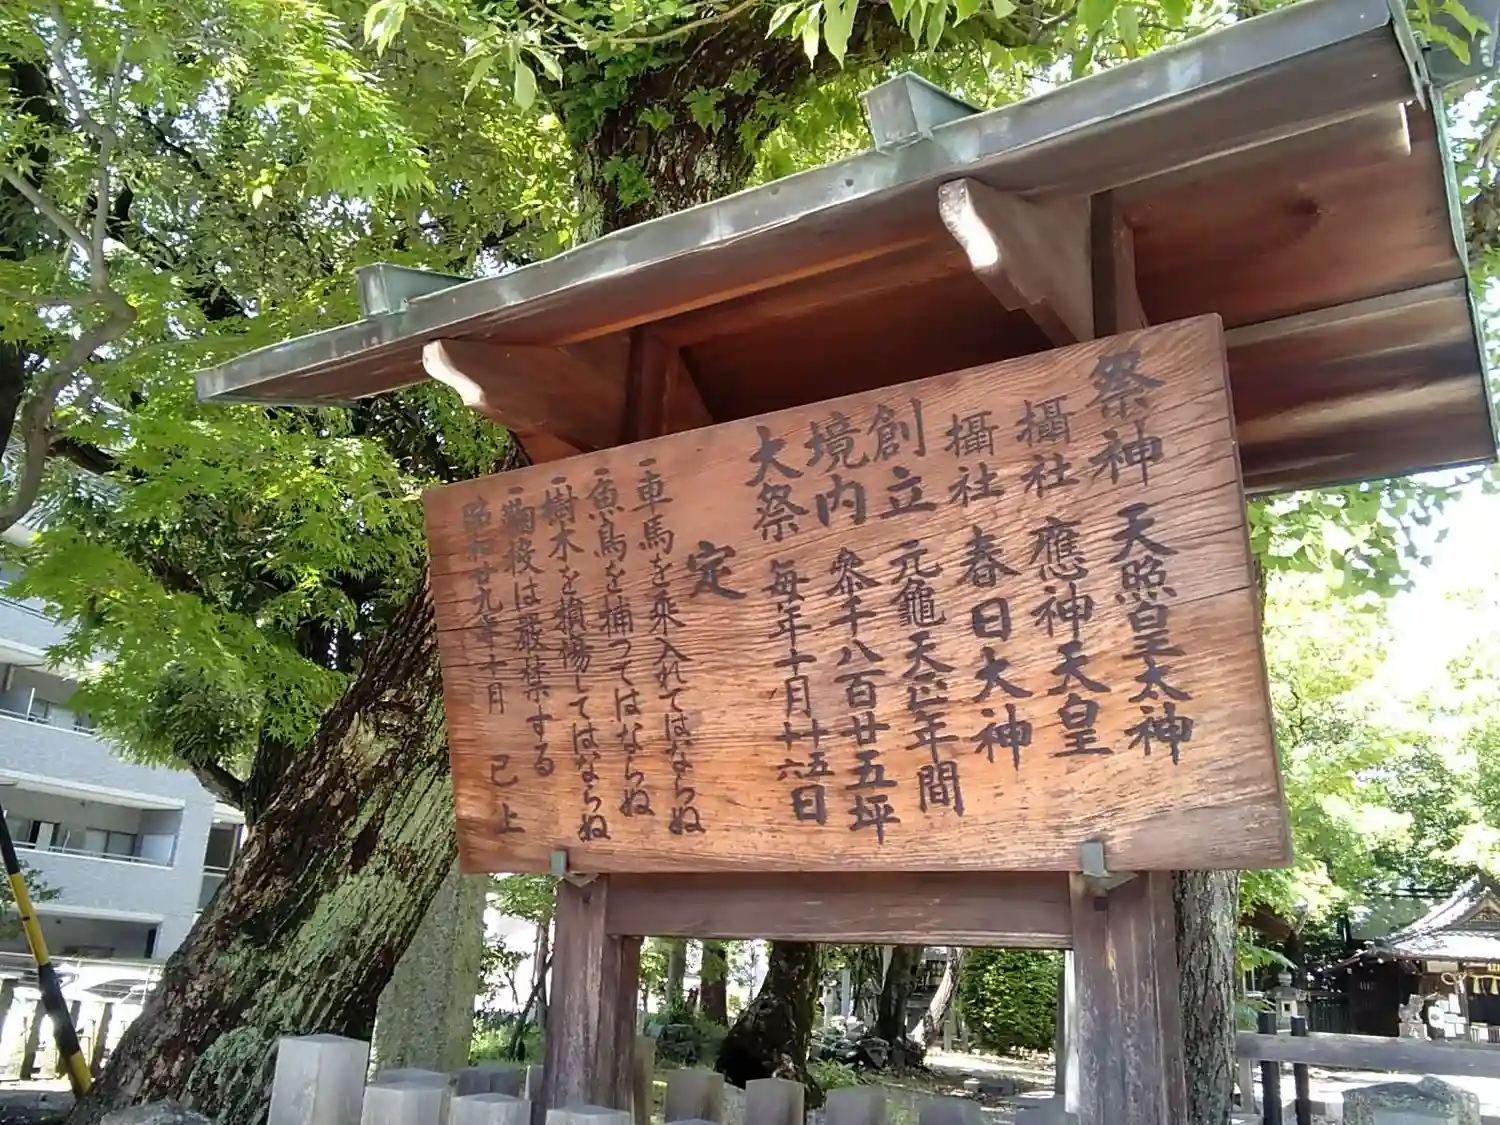 祭神 天照皇太神
攝社 應神天皇
攝社 春日大神
創立 元龜天正年間
境内 参千八百廿五坪
大祭 毎年十月十五十六日
定
一車馬を乗入れてはならぬ
一魚鳥を捕つてはならぬ
一樹木を損傷してはならぬ
一鞠投は嚴禁する
昭和廿九年十月 已上